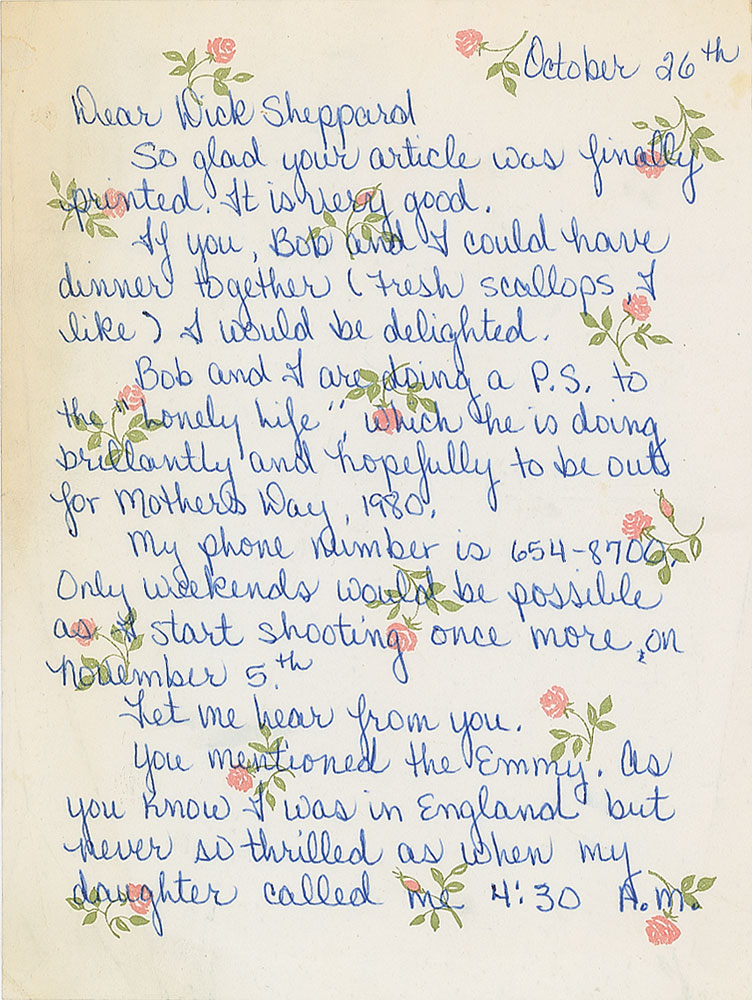 October 26th
Dear Dick Sheppard
So glad your article was finally
printed. It is very good.
If you, Bob and I could have
dinner together (Fresh scallops, I
like) I would be delighted.
Bob and I are doing a P.S. to
the "Lonely Life", which he is doing
brillantly and hopefully to be out
for Mothers Day, 1980.
My phone number is 654-8700.
Only weekends would be possible
as I start shooting once more, on
November 5.th
Let me hear from you.
You mentioned the Emmy. As
you know I was in England but
never so thrilled as when my
daughter called me 4:30 A.M.